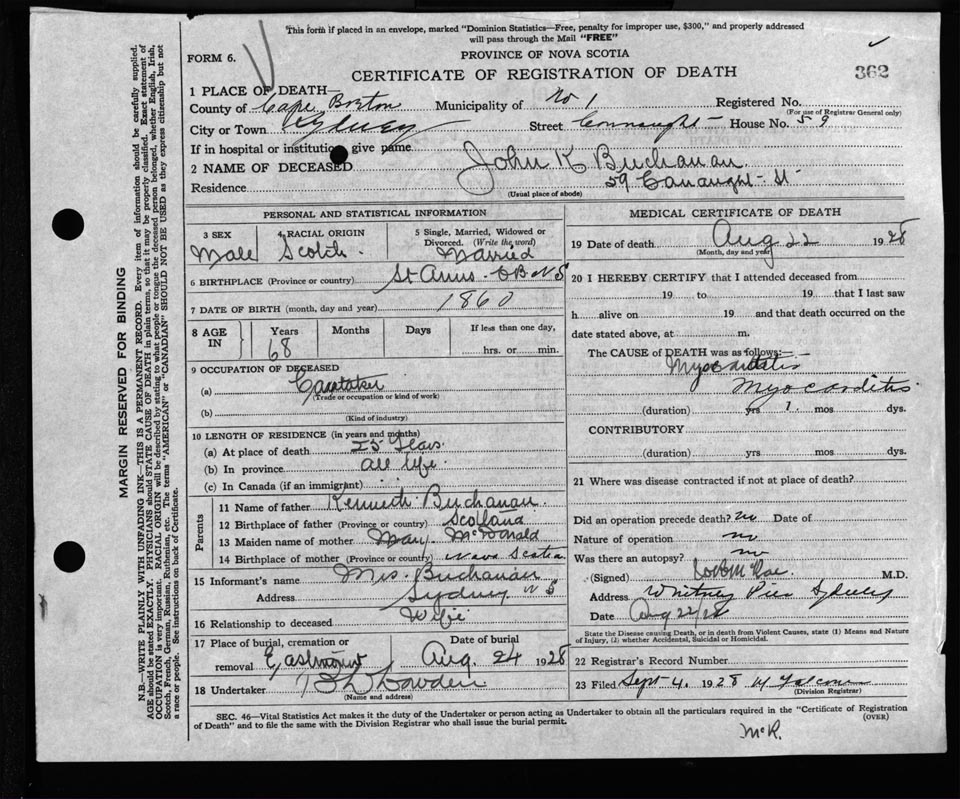 This form if placed in an envelope, marked "Dominion Statistics—Free, penalty for improper use, $300," and properly addressed
will pass through the Mail "FREE"
FORM 6.
PROVINCE OF NOVA SCOTIA
CERTIFICATE OF REGISTRATION OF DEATH
362
1 PLACE OF DEATH—
County of Cape Breton Municipality of No 1 Registered No.
(For use of Registrar General only)
City or Town Sydney Street Connaught House No. 59
If in hospital or institution give name
2 NAME OF DECEASED John K Buchanan
Residence 59 Conaught St
(Usual place of abode)
PERSONAL AND STATISTICAL INFORMATION
3 SEX Male
4 RACIAL ORIGIN Scotch.
5 Single, Married, Widowed or
Divorced. (Write the word)
Married
6 BIRTHPLACE (Province or country) St Anns CB NS
7 DATE OF BIRTH (month, day and year) 1860
8 AGE IN Years Months Days If less than one day,
68 hrs. or min.
9 OCCUPATION OF DECEASED
(a) Caretaker
(Trade or occupation or kind of work)
(b)
(Kind of industry)
10 LENGTH OF RESIDENCE (in years and months)
(a) At place of death 25 Years
(b) In province all life
(c) In Canada (if an immigrant)
Parents
11 Name of father Kenneth Buchanan
12 Birthplace of father (Province or country) Scotland
13 Maiden name of mother Mary McDonald
14 Birthplace of mother (Province or country) Nova Scotia
15 Informant's name Mrs. Buchanan
Address Sydney NS
16 Relationship to deceased Wife
17 Place of burial, cremation or
removal Eastmount
Date of burial
Aug. 24 1928
18 Undertaker
(Name and address)
MEDICAL CERTIFICATE OF DEATH
19 Date of death Aug 22 1928
(Month, day and year)
20 I HEREBY CERTIFY that I attended deceased from
19 to 19 that I last saw
h alive on 19 and that death occurred on the
date stated above, at m.
The CAUSE of DEATH was as follows:—
Myocarditis
(duration) yrs 1. mos dys.
CONTRIBUTORY
(duration) yrs mos dys.
21 Where was disease contracted if not at place of death?
Did an operation precede death? no Date of
Nature of operation no
Was there an autopsy? no
(Signed) M.D.
Address Whitney Pier Sydney
Date Aug 22/28
State the Disease causing Death, or in death from Violent Causes, state (1) Means and Nature
of injury, (2) whether Accidental, Suicidal or Homicidal.
22 Registrar's Record Number
23 Filed Sept 4. 1928
(Division Registrar)
SEC. 46—Vital Statistics Act makes it the duty of the Undertaker or person acting as Undertaker to obtain all the particulars required in the "Certificate of Registration
of Death" and to file the same with the Division Registrar who shall issue the burial permit.
(OVER)
McR.
MARGIN RESERVED FOR BINDING
N.B.—WRITE PLAINLY WITH UNFADING INK—THIS IS A PERMANENT RECORD. Every item of information should be carefully supplied.
AGE should be stated EXACTLY. PHYSICIANS should STATE CAUSE OF DEATH in plain terms, so that it may be properly classified. Exact statement of
OCCUPATION is very important. RACIAL ORIGIN will be described by stating to what people or tongue the deceased person belonged, whether English, Irish,
Scotch, French, German, Russian, Ruthenian, etc. The terms "AMERICAN" or "CANADIAN" SHOULD NOT BE USED as they express citizenship but not
a race or people. See instructions on back of Certificate.